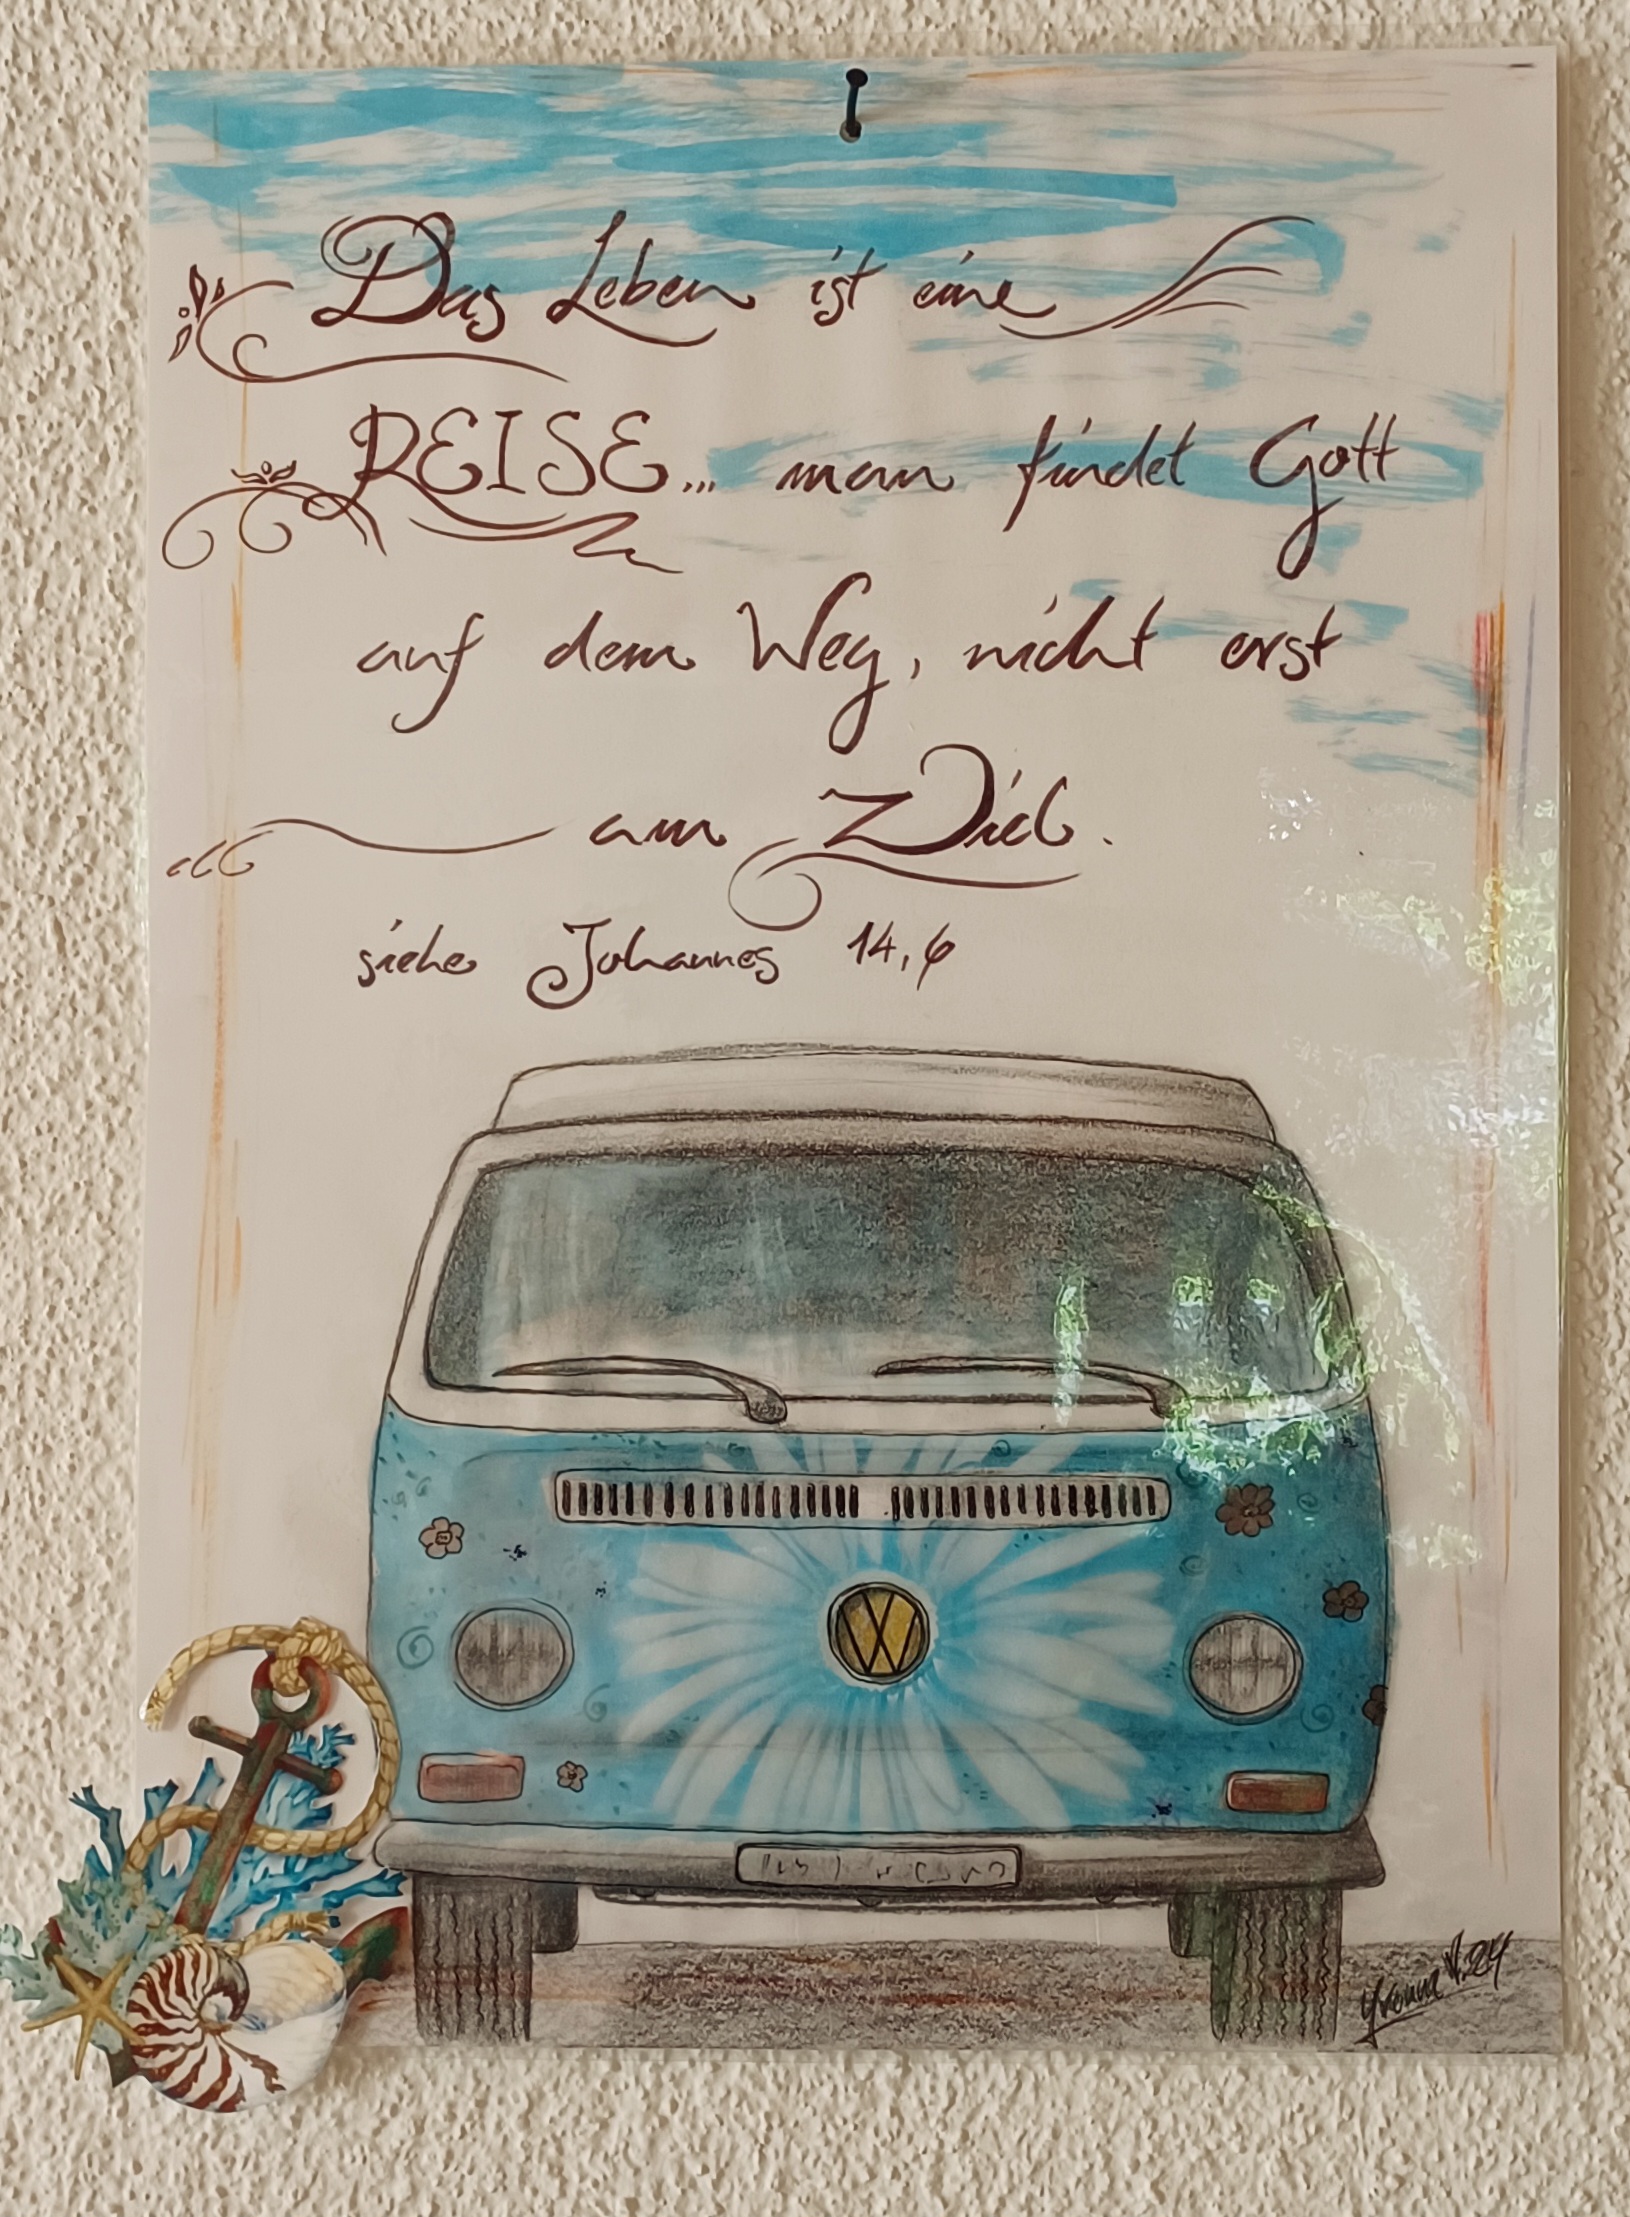 Das Leben ist eine
REISE... man findet Gott
auf dem Weg, nicht erst
am Ziel.
siehe Johannes 14,6
VW